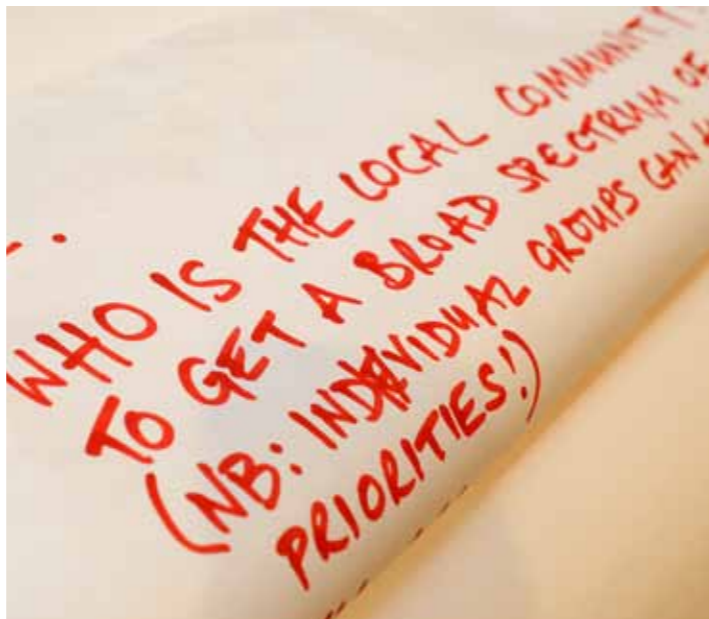 WHO IS THE LOCAL COMMUNITY
TO GET A BROAD SPECTRUM OF
(NB: INDIVIDUAL GROUPS CAN
PRIORITIES!)